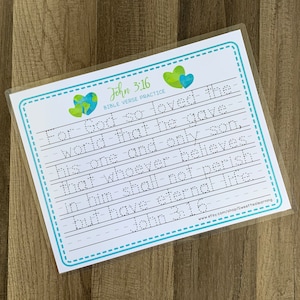 John 3:16
BIBLE VERSE PRACTICE
For God so loved the
world that he gave
his one and only son,
that whoever believes
in him shall not perish
but have eternal life.
John 3:16